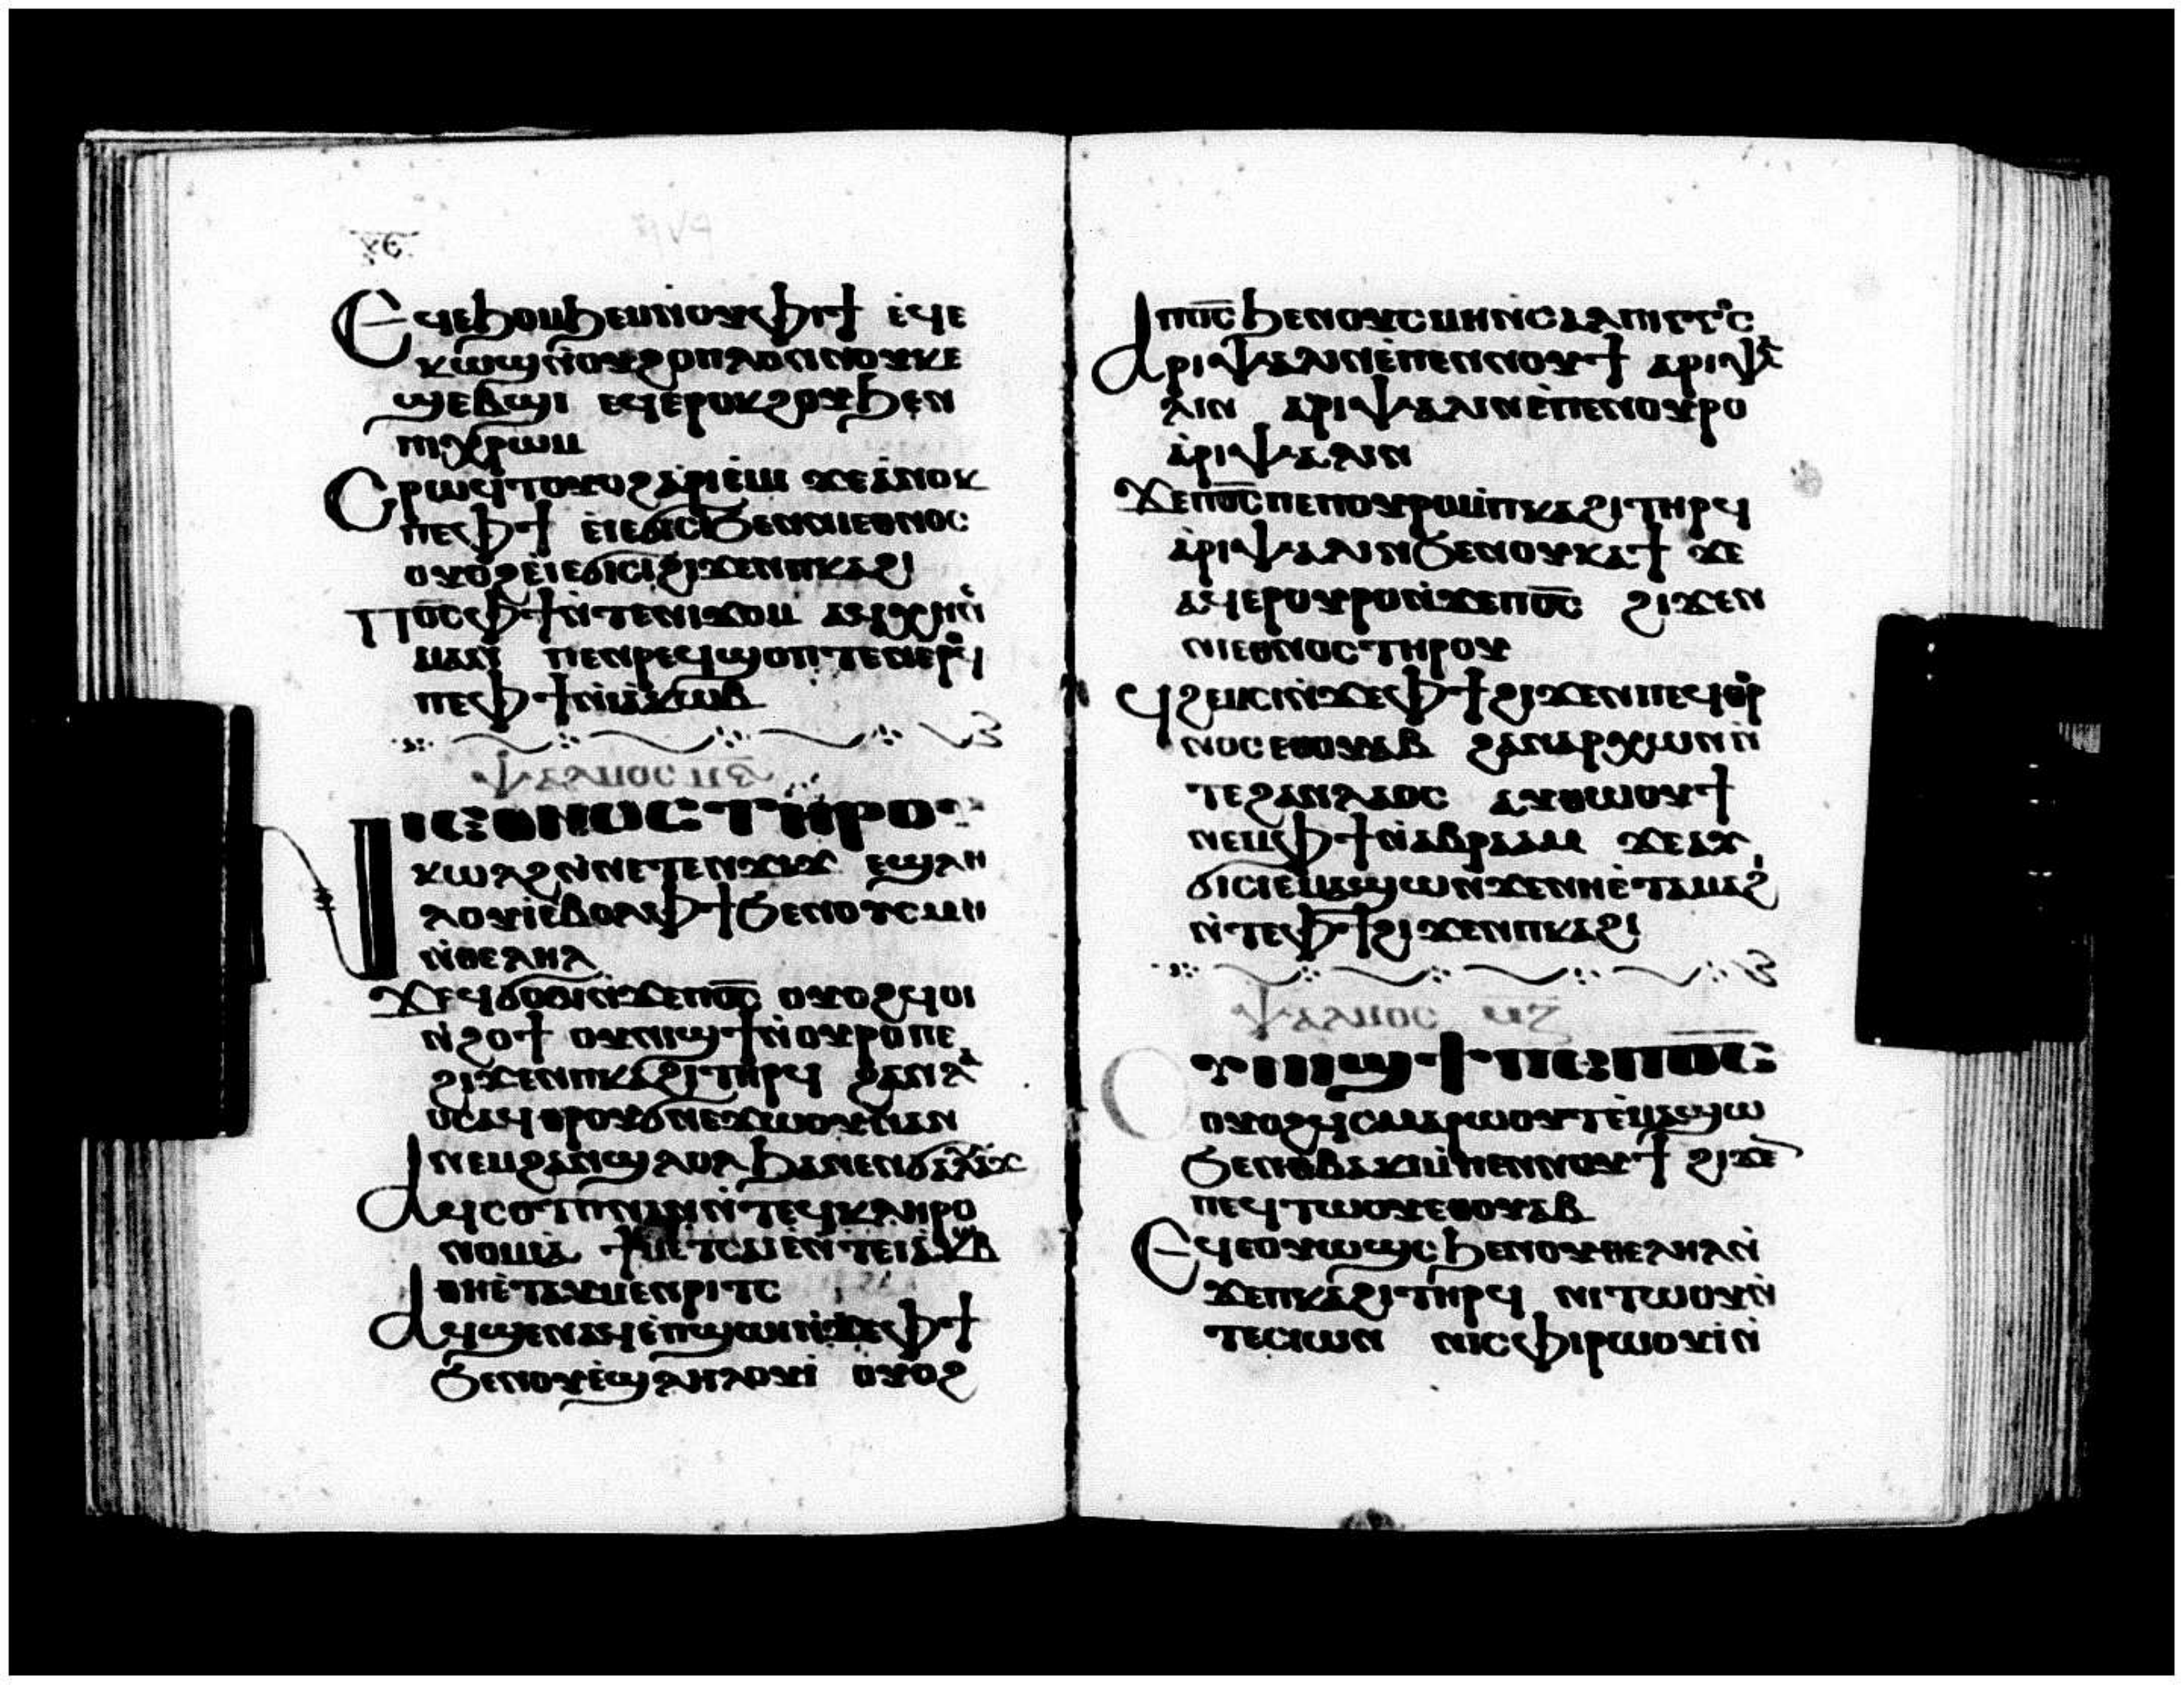 ⲗⲉ
Ⲉϥⲉϧⲟⲙϧⲉⲙⲛⲟⲩⲫⲓϯ ⲉ̇ϥⲉ
ⲕⲱϣⲛ̇ⲟⲩϩⲟⲡⲗⲟⲛⲛⲟⲩⲕⲉ
ϣⲉⲃϣⲓ ⲉϥⲉⲣⲟⲕϩⲟⲩϧⲉⲛ
ⲡⲓⲭⲣⲱⲙ
Ⲥⲣⲱϥⲧⲟⲩⲟϩⲁ̇ⲣⲓⲉ̇ⲙⲓ ϫⲉⲁ̇ⲛⲟⲕ
ⲡⲉⲫϯ ⲉⲓⲉϭⲓⲥⲓϧⲉⲛⲛⲓⲉⲑⲛⲟⲥ
ⲟⲩⲟϩⲉ̇ⲓⲉϭⲓⲥⲓϩⲓϫⲉⲛⲡⲕⲁϩⲓ
Ⲡⲟ̅ⲥ̅ⲫϯⲛ̇ⲧⲉⲛⲓϫⲟⲙ ⲁϥⲭⲏⲛⲉ
ⲙⲁⲛ ⲡⲉⲛⲣⲉϥϣⲟⲡⲧⲉⲛⲉⲣⲟϥ
ⲡⲉⲫϯⲛ̇ⲓⲁ̇ⲕⲱⲃ
Ⲯⲁⲗⲙⲟⲥ ⲙ̅ⲋ̅
Ⲛⲓⲉⲑⲛⲟⲥ ⲧⲏⲣⲟⲩ
ⲕⲱⲗϩⲛ̇ⲛⲉⲧⲉⲛϫⲓϫ ⲉϣⲗⲏ
ⲗⲟⲩⲓ̇ⲉⲃⲟⲗⲙ̇ⲫϯϧⲉⲛⲟⲩⲥⲙⲏ
ⲛ̇ⲑⲉⲗⲏⲗ
Ϫⲉϥϭⲟⲥⲓⲛ̇ϫⲉⲡⲟ̅ⲥ̅ ⲟⲩⲟϩϥⲟⲓ
ⲛ̇ϩⲟϯ ⲟⲩⲛⲓϣϯⲛ̇ⲟⲩⲣⲟⲡⲉ
ϩⲓϫⲉⲛⲡⲕⲁϩⲓⲧⲏⲣϥ ϩⲁⲛⲗⲁ
ⲟⲥⲁϥⲑⲣⲟⲩϭⲛⲉϫⲱⲟⲩⲛⲁⲛ
ⲛⲉⲙϩⲁⲛϣⲗⲟⲗϧⲁⲛⲉⲛϭⲁⲗⲁⲩϫ
Ⲁϥⲥⲟⲧⲡⲛⲁⲛⲛ̇ⲧⲉϥⲕⲗⲏⲣⲟ
ⲛⲟⲙⲓⲁ̇ ϯⲙⲉⲧⲥⲁⲓⲉ̇ⲛⲧⲉⲓⲁ̇ⲕⲱⲃ
ⲑⲏⲉ̇ⲧⲁϥⲙⲉⲛⲣⲓⲧⲥ
Ⲁϥϣⲉⲛⲁϥⲉ̇ⲡϣⲱⲓⲛ̇ϫⲉⲫϯ
ϧⲉⲛⲟⲩⲉ̇ϣⲗⲏⲗⲟⲩⲓ̇ ⲟⲩⲟϩ
ⲁⲡⲟ̅ⲥ̅ϧⲉⲛⲟⲩⲥⲙⲏⲛⲥⲁⲗⲡⲓⲅⲅⲟⲥ
Ⲁⲣⲓⲯⲁⲗⲓⲛⲉ̇ⲡⲉⲛⲛⲟⲩϯ ⲁⲣⲓⲯⲁ
ⲗⲓⲛ ⲁⲣⲓⲯⲁⲗⲓⲛⲉ̇ⲡⲉⲛⲟⲩⲣⲟ
ⲁ̇ⲣⲓⲯⲁⲗⲓⲛ
Ϫⲉⲡⲟ̅ⲥ̅ⲡⲉⲡⲟⲩⲣⲟⲙ̇ⲡⲕⲁϩⲓⲧⲏⲣϥ
ⲁ̇ⲣⲓⲯⲁⲗⲓⲛϧⲉⲛⲟⲩⲕⲁϯ ϫⲉ
ⲁϥⲉⲣⲟⲩⲣⲟⲛ̇ϫⲉⲡⲟ̅ⲥ̅ ϩⲓϫⲉⲛ
ⲛⲓⲉⲑⲛⲟⲥⲧⲏⲣⲟⲩ
Ϥϩⲉⲙⲥⲓⲛ̇ϫⲉⲫϯϩⲓϫⲉⲛⲡⲉϥⲑⲣⲟ
ⲛⲟⲥⲉⲑⲟⲩⲁⲃ ϩⲁⲛⲁⲣⲭⲱⲛⲛ̇
ⲧⲉϩⲁⲛⲗⲁⲟⲥ ⲁⲩⲑⲱⲟⲩϯ
ⲛⲉⲙⲫϯⲛ̇ⲁⲃⲣⲁⲁⲙ ϫⲉⲁⲩ
ϭⲓⲥⲓⲉ̇ⲙⲁϣⲱⲛ̇ϫⲉⲛⲏⲉ̇ⲧⲁⲙⲁϩⲓ
ⲛ̇ⲧⲉⲫϯϩⲓϫⲉⲛⲡⲕⲁϩⲓ
Ⲯⲁⲗⲙⲟⲥ ⲙ̅ⲍ̅
Ⲟⲩⲛⲓϣϯⲡⲉⲡⲟ̅ⲥ̅
ⲟⲩⲟϩϥⲥⲙⲁⲣⲱⲟⲩⲧⲉ̇ⲙⲁϣⲱ
ϧⲉⲛⲑⲃⲁⲕⲓⲙ̇ⲡⲉⲛⲛⲟⲩϯ ϩⲓϫⲉⲛ
ⲡⲉϥⲧⲱⲟⲩⲉⲑⲟⲩⲁⲃ
Ⲉϥⲉⲟⲩⲱϣⲥϧⲉⲛⲟⲩⲑⲉⲗⲏⲗⲛ̇
ϫⲉⲡⲕⲁϩⲓⲧⲏⲣϥ ⲛⲓⲧⲱⲟⲩⲛ̇
ⲧⲉⲥⲓⲱⲛ ⲛⲓⲥⲫⲓⲣⲱⲟⲩⲓ̇ⲛ̇